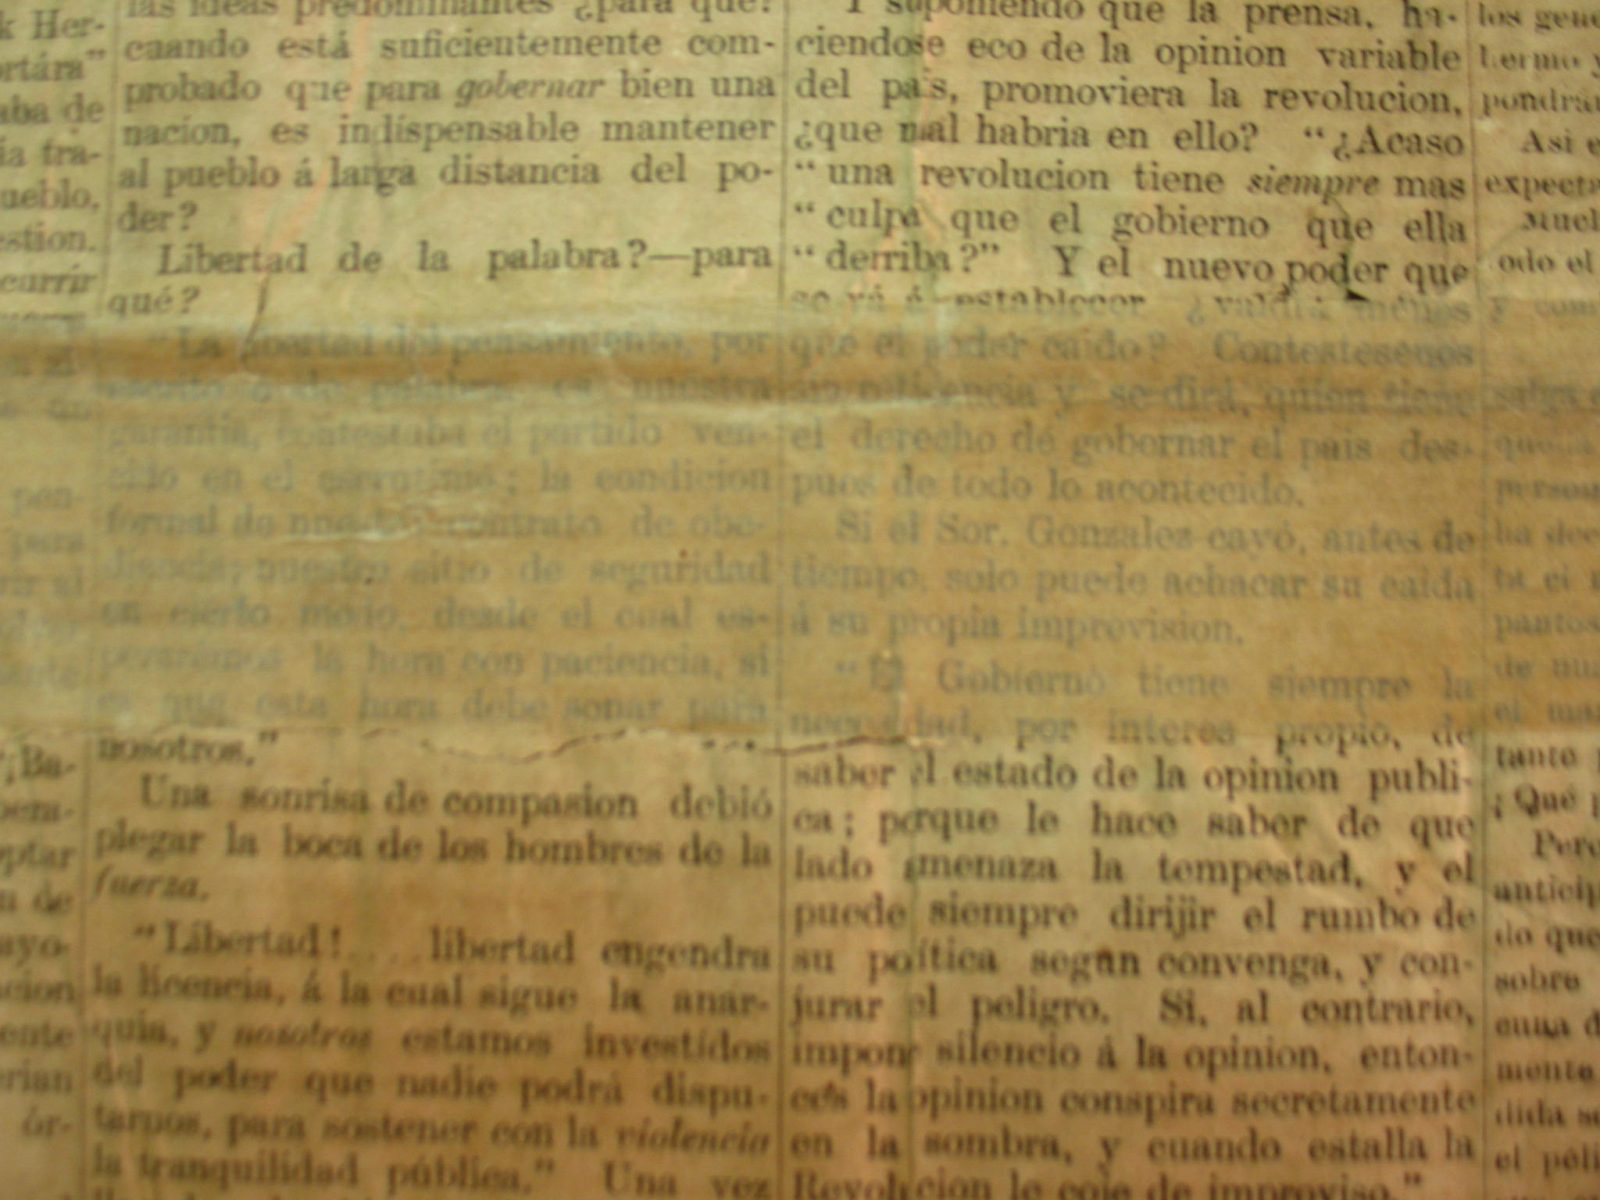 k Her-
ortára"
aba de
ia tra-
ueblo.
estion.
currir
pen-
para
vir al
"¡Ba-
pera-
eptar
n de
ayo-
acion
ente
erian
ór-
las ideas predominantes ¿para qué?
cuando está suficientemente com-
probado que para gobernar bien una
nacion, es indispensable mantener
al pueblo á larga distancia del po-
der?
Libertad de la palabra?—para
qué?
"La libertad del pensamiento, por
escrito ó de palabra, es nuestra
garantía, contestaba el partido ven-
cido en el escrutinio; la condicion
formal de nuestro contrato de obe-
diencia; nuestro sitio de seguridad
en cierto modo, desde el cual es-
peraremos la hora con paciencia, si
es que esta hora debe sonar para
nosotros."
Una sonrisa de compasion debió
plegar la boca de los hombres de la
fuerza.
"Libertad!....libertad engendra
la licencia, á la cual sigue la anar-
quia, y nosotros estamos investidos
del poder que nadie podrá dispu-
tarnos, para sostener con la violencia
la tranquilidad pública." Una vez
Y suponiendo que la prensa, ha-
ciendose eco de la opinion variable
del pais, promoviera la revolucion,
¿que mal habria en ello? "¿Acaso
"una revolucion tiene siempre mas
"culpa que el gobierno que ella
"derriba?" Y el nuevo poder que
se vá á establecer ¿valdrá ménos
que el poder caido? Contestesenos
sin reticencia y se dirá, quien tiene
el derecho de gobernar el pais des-
pues de todo lo acontecido.
Si el Sor. Gonzalez cayó, antes de
tiempo, solo puede achacar su caida
á su propia imprevision.
"El Gobierno tiene siempre la
necesidad, por interes propio, de
saber el estado de la opinion publi-
ca; porque le hace saber de que
lado amenaza la tempestad, y el
puede siempre dirijir el rumbo de
su politica según convenga, y con-
jurar el peligro. Si, al contrario,
impone silencio á la opinion, enton-
ces la opinion conspira secretamente
en la sombra, y cuando estalla la
Revolucion le coje de improviso."
los gene
pondrán
Asi e
expecta
Much
odo el
y com
salga e
person
ha dec
de nu
el man
tante p
¡Qué p
Pero
anticip
do que
sobre
mente
dida se
el peli